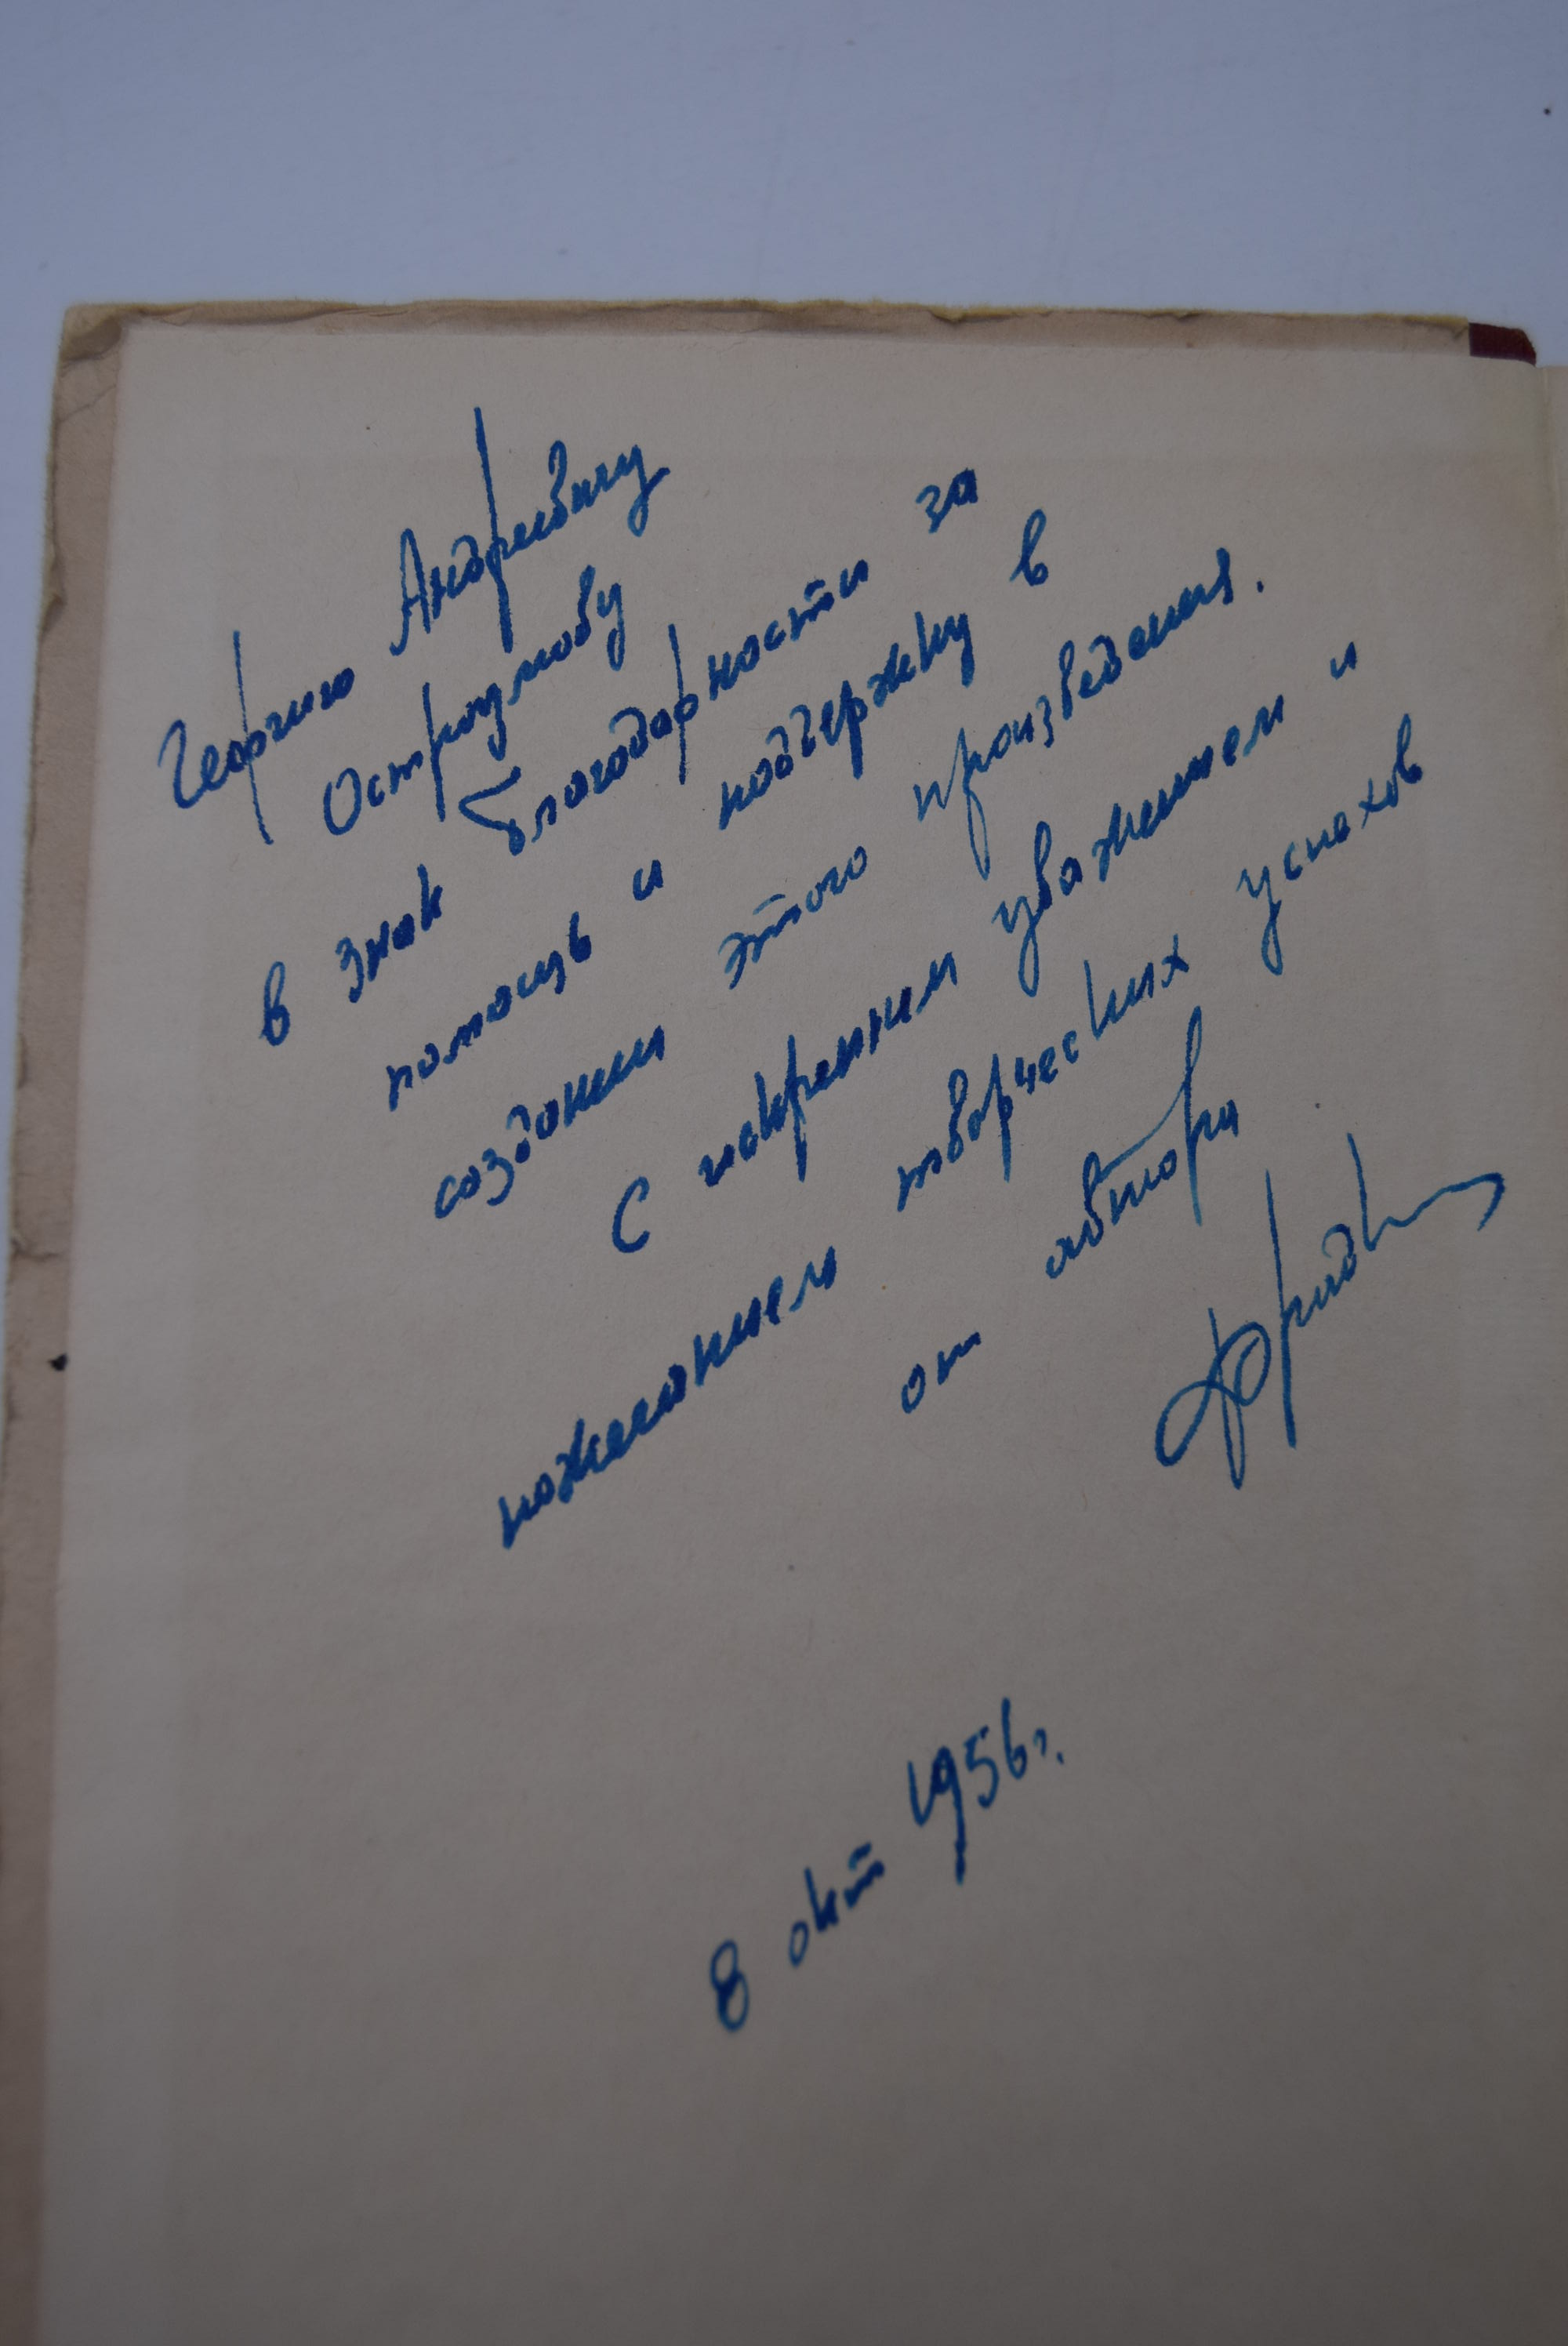 Георгию Андреевичу
Остроумову
в знак благодарности за
помощь и поддержку в
создании этого произведения.
С искренним уважением и
пожеланием творческих успехов
от автора
8 окт 1956 г.